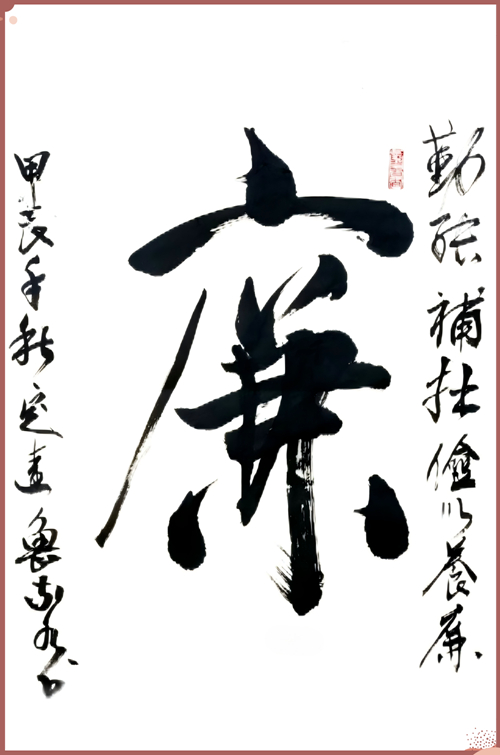 勤能補拙儉以養廉
廉
甲辰年秋定遠魯